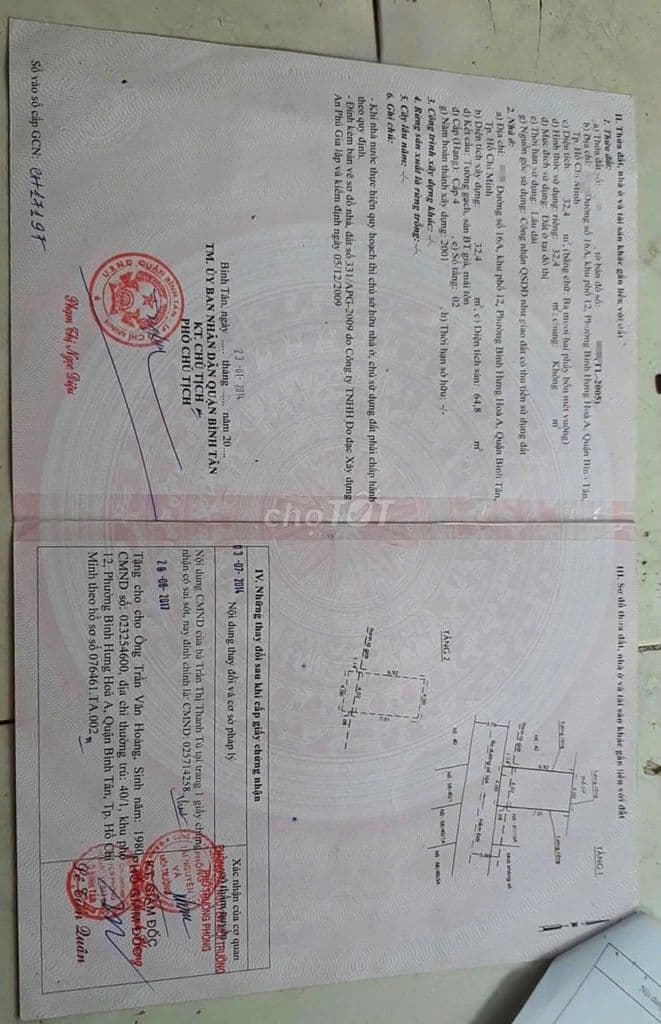 II. Thửa đất, nhà ở và tài sản khác gắn liền với đất
1. Thửa đất:
a) Thửa đất số: , tờ bản đồ số: (T1.-2005)
b) Địa chỉ: Đường số 16A, khu phố 12, Phường Bình Hưng Hoà A, Quận Bình Tân,
Tp. Hồ Chí Minh
c) Diện tích: 32,4 m², (bằng chữ: Ba mươi hai phẩy bốn mét vuông)
d) Hình thức sử dụng: riêng: 32,4 m²; chung: Không m²
đ) Mục đích sử dụng: Đất ở tại đô thị
e) Thời hạn sử dụng: Lâu dài
g) Nguồn gốc sử dụng: Công nhận QSDĐ như giao đất có thu tiền sử dụng đất
2. Nhà ở:
a) Địa chỉ: Đường số 16A, khu phố 12, Phường Bình Hưng Hoà A, Quận Bình Tân,
Tp. Hồ Chí Minh
b) Diện tích xây dựng: 32,4 m², c) Diện tích sàn: 64,8 m²
d) Kết cấu: Tường gạch, sàn BT giả, mái tôn
đ) Cấp (Hạng): Cấp 4 , e) Số tầng: 02
g) Năm hoàn thành xây dựng: 2001 , h) Thời hạn sở hữu: -/-
3. Công trình xây dựng khác: -/-
4. Rừng sản xuất là rừng trồng: -/-
5. Cây lâu năm: -/-
6. Ghi chú:
- Khi nhà nước thực hiện quy hoạch thì chủ sở hữu nhà ở, chủ sử dụng đất phải chấp hành
theo quy định.
- Đính kèm bản vẽ sơ đồ nhà, đất số 331/APG-2009 do Công ty TNHH Đo đạc Xây dựng
An Phú Gia lập và kiểm định ngày 05/12/2009
23-01-2014
Bình Tân, ngày ..... tháng ..... năm 20....
TM. ỦY BAN NHÂN DÂN QUẬN BÌNH TÂN
KT. CHỦ TỊCH
PHÓ CHỦ TỊCH
Phạm Thị Ngọc Diệu
Số vào sổ cấp GCN: CH17197
III. Sơ đồ thửa đất, nhà ở và tài sản khác gắn liền với đất
TẦNG 1
TẦNG 2
IV. Những thay đổi sau khi cấp giấy chứng nhận
Nội dung thay đổi và cơ sở pháp lý
Xác nhận của cơ quan
03-07-2014
Nội dung CMND của bà Trần Thị Thanh Tú tại trang 1 giấy chứng
nhận có sai sót, nay đính chính là: CMND: 025714258.
PHÓ TRƯỞNG PHÒNG
28-08-2017
Tặng cho cho Ông Trần Văn Hoàng, Sinh năm: 1980,
CMND số: 023254600, địa chỉ thường trú: 40/1, khu phố
12, Phường Bình Hưng Hoà A, Quận Bình Tân, Tp. Hồ Chí
Minh;theo hồ sơ số 076461.TA.002
KT. GIÁM ĐỐC
PHÓ GIÁM ĐỐC
choTỐT